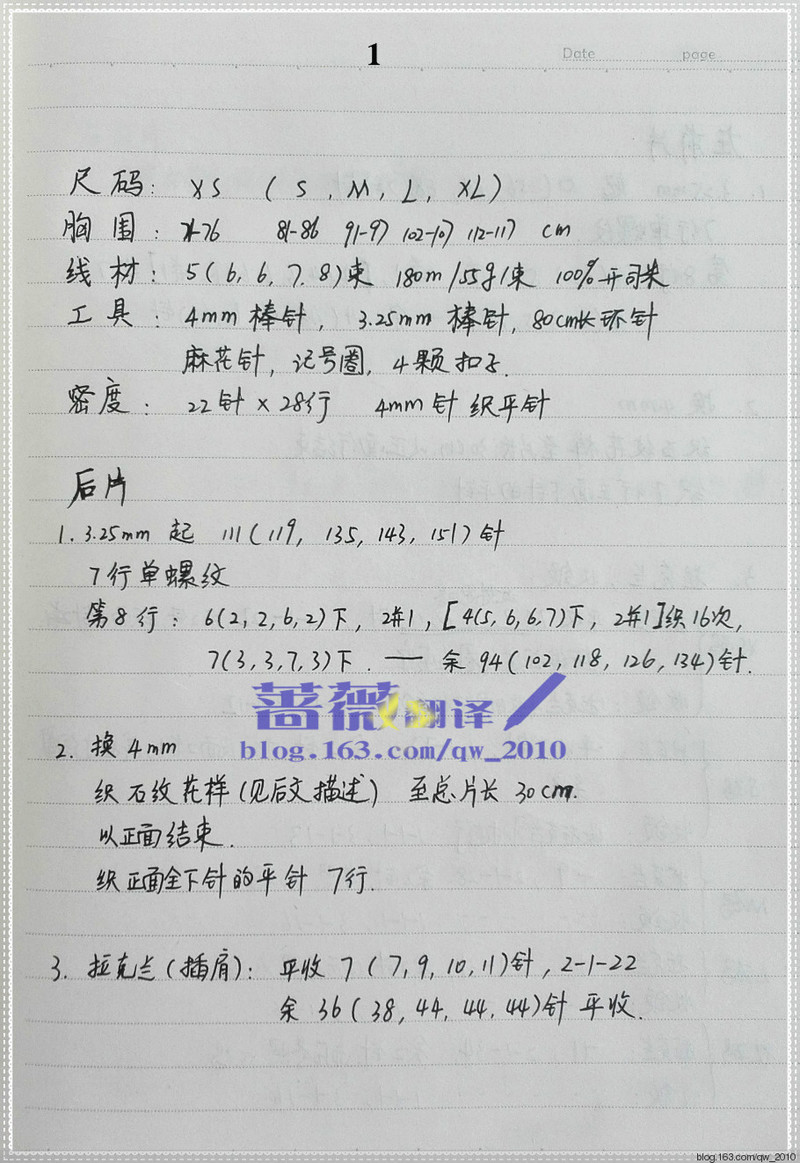 1
Date page
尺码: XS (S, M, L, XL)
胸围: 71-76 81-86 91-97 102-107 112-117 cm
线材: 5(6, 6, 7, 8)束 180m/55g/束 100%开司米
工具: 4mm棒针, 3.25mm棒针, 80cm长环针
麻花针, 记号圈, 4颗扣子.
密度: 22针×28行 4mm针织平针
后片
1. 3.25mm 起 111(119, 135, 143, 151)针
7行单螺纹
第8行: 6(2, 2, 6, 2)下, 2并1, [4(5, 6, 6, 7)下, 2并1]织16次,
7(3, 3, 7, 3)下. — 余 94(102, 118, 126, 134)针.
蔷薇翻译
blog.163.com/qw_2010
2. 换4mm
织石纹花样(见后文描述) 至总片长30cm.
以正面结束.
织正面全下针的平针 7行.
3. 拉克兰(插肩): 平收 7(7, 9, 10, 11)针, 2-1-22
余 36(38, 44, 44, 44)针 平收.
blog.163.com/qw_2010